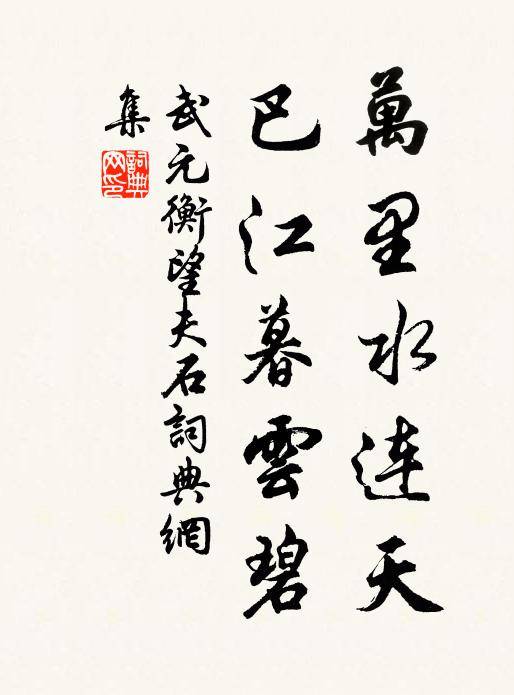 萬里水連天
巴江暮雲碧
武元衡望夫石詞典網
集
詞典網印